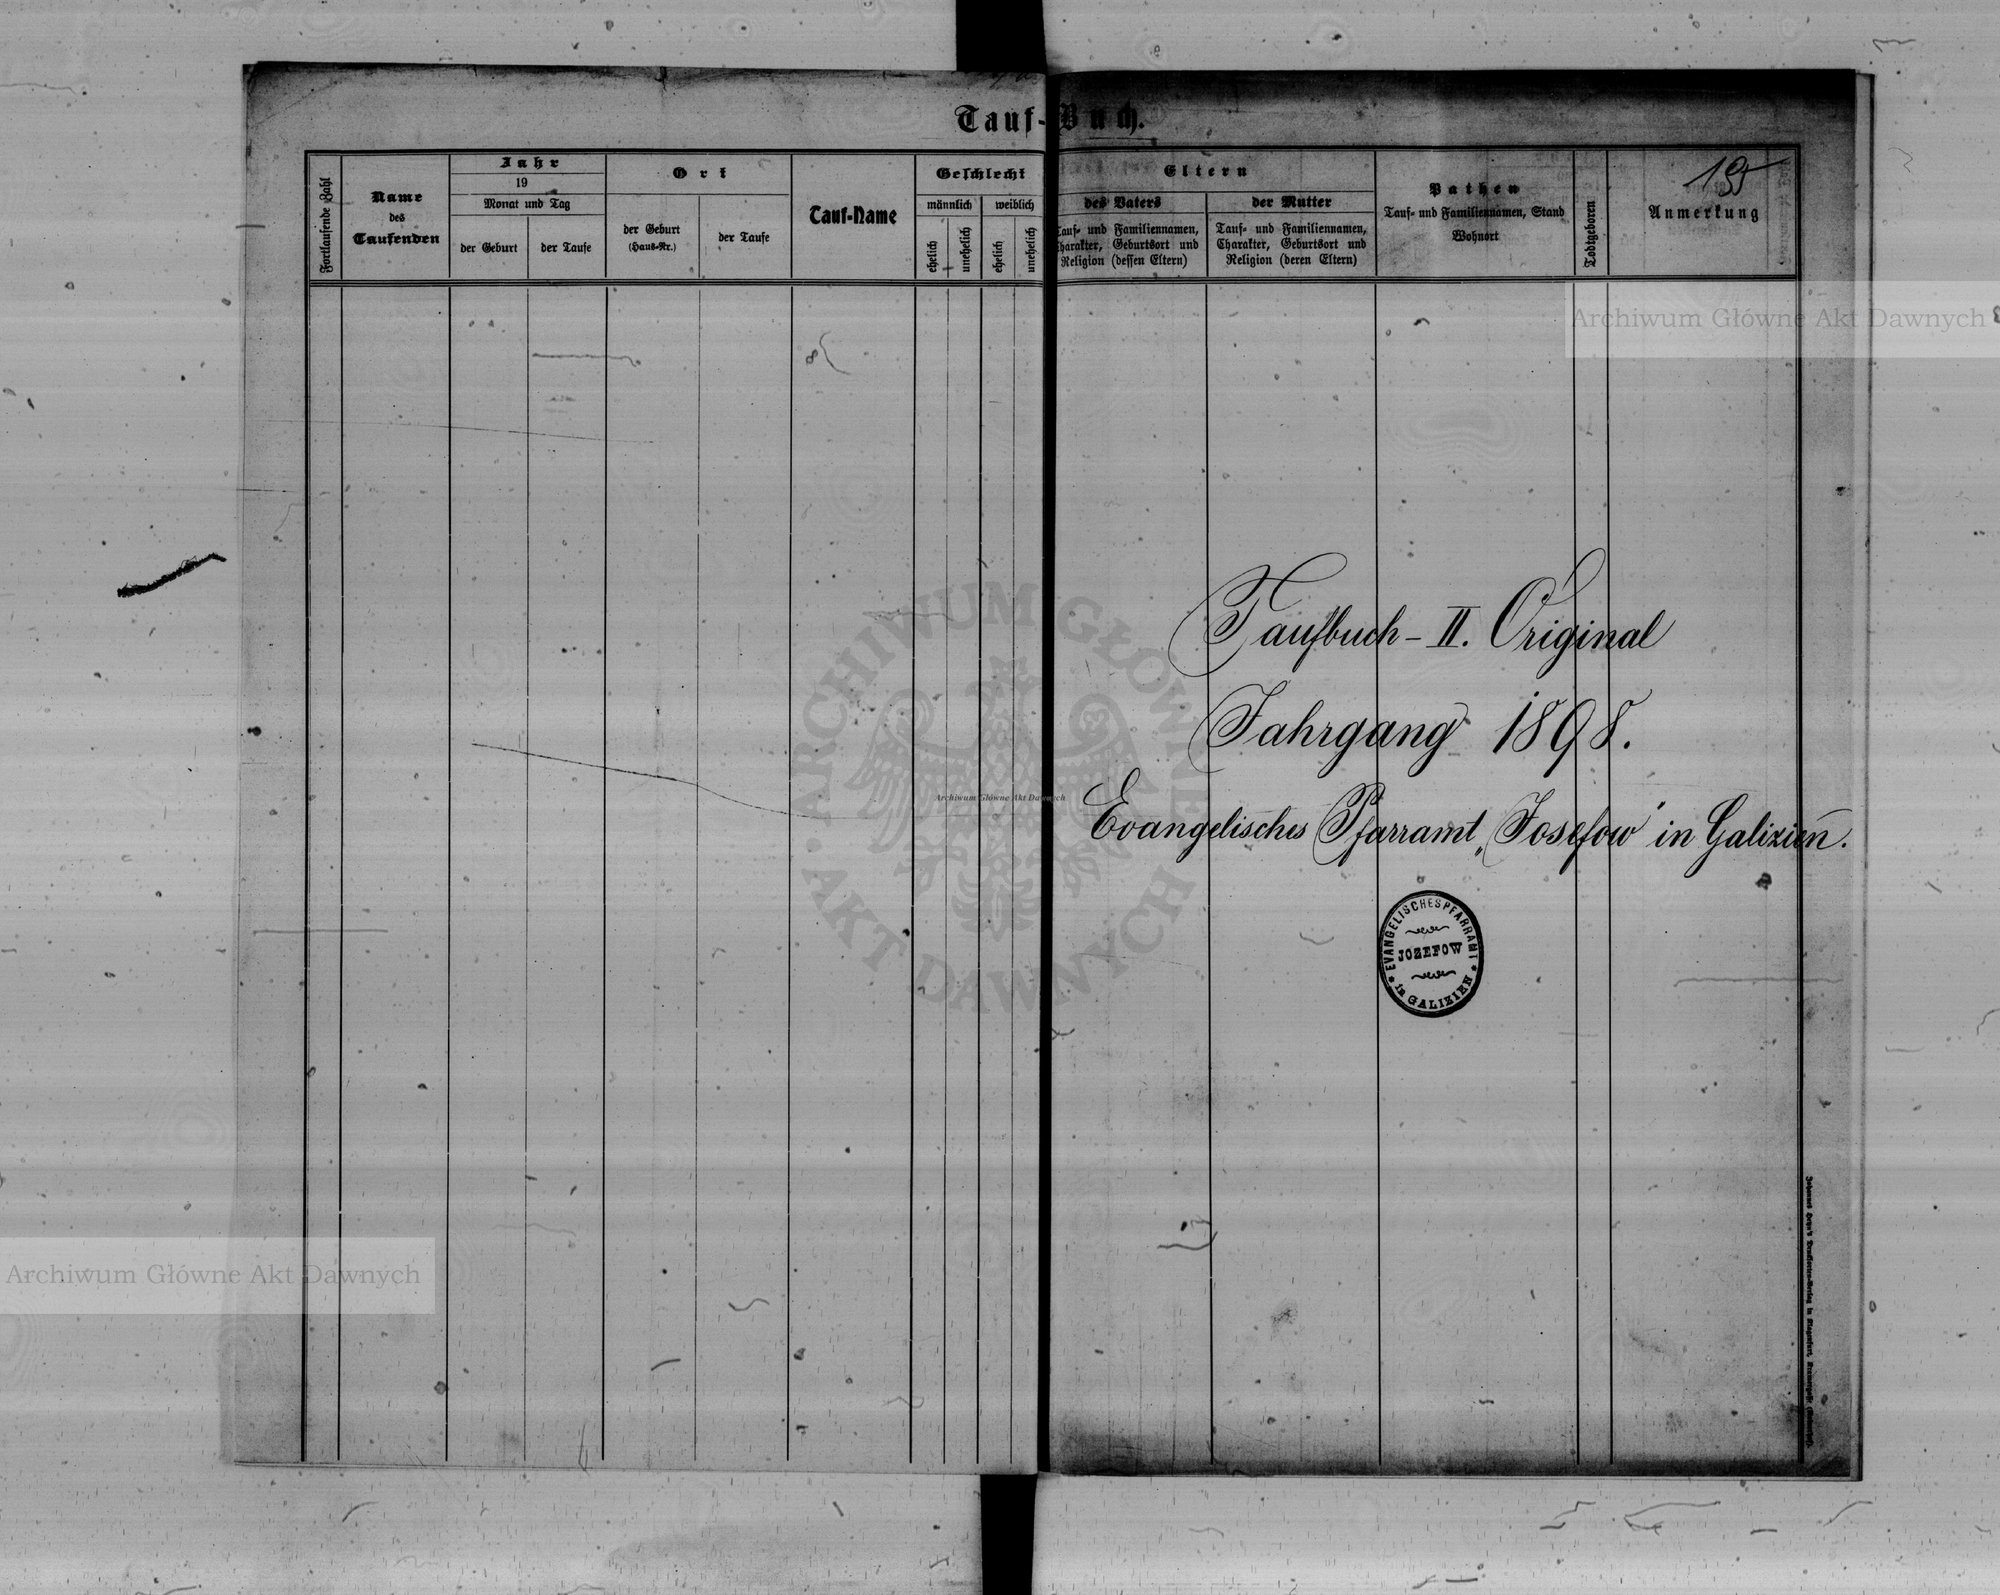 Tauf-Buch.
Fortlaufende Zahl
Name
des
Taufenden
Jahr
19
Monat und Tag
der Geburt
der Taufe
Ort
der Geburt
(Haus-Nr.)
der Taufe
Tauf-Name
Geschlecht
männlich
weiblich
ehelich
unehelich
ehelich
unehelich
Eltern
des Vaters
Tauf- und Familiennamen,
Charakter, Geburtsort und
Religion (dessen Eltern)
der Mutter
Tauf- und Familiennamen,
Charakter, Geburtsort und
Religion (deren Eltern)
Pathen
Tauf- und Familiennamen, Stand
Wohnort
Todtgeboren
Anmerkung
Archiwum Główne Akt Dawnych
Taufbuch - II. Original
Jahrgang 1898.
Evangelisches Pfarramt „Josefow" in Galizien.
EVANGELISCHES PFARRAMT
JOZEFOW
in GALIZIEN
ARCHIWUM GŁÓWNE
AKT DAWNYCH
Archiwum Główne Akt Dawnych
Archiwum Główne Akt Dawnych